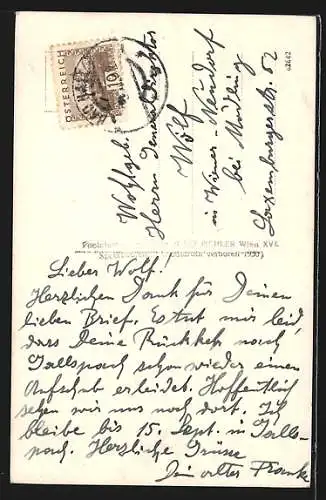 ÖSTERREICH
10
Wohlgeb.
Herrn
Wolf
in Wiener-Neudorf
bei Mödling
Laxenburgerstr. 52
42642
Wien XVI.
verboten 1930
Lieber Wolf!
Herzlichen Dank für Deinen
lieben Brief. Es tut mir leid,
dass Deine Rückkeh nach
Gallspach schon wieder einen
Aufschub erleidet. Hoffentlich
sehen wir uns noch dort. Ich
bleibe bis 15. Sept. in Galls-
pach. Herzliche Grüsse
Dein alter Franke